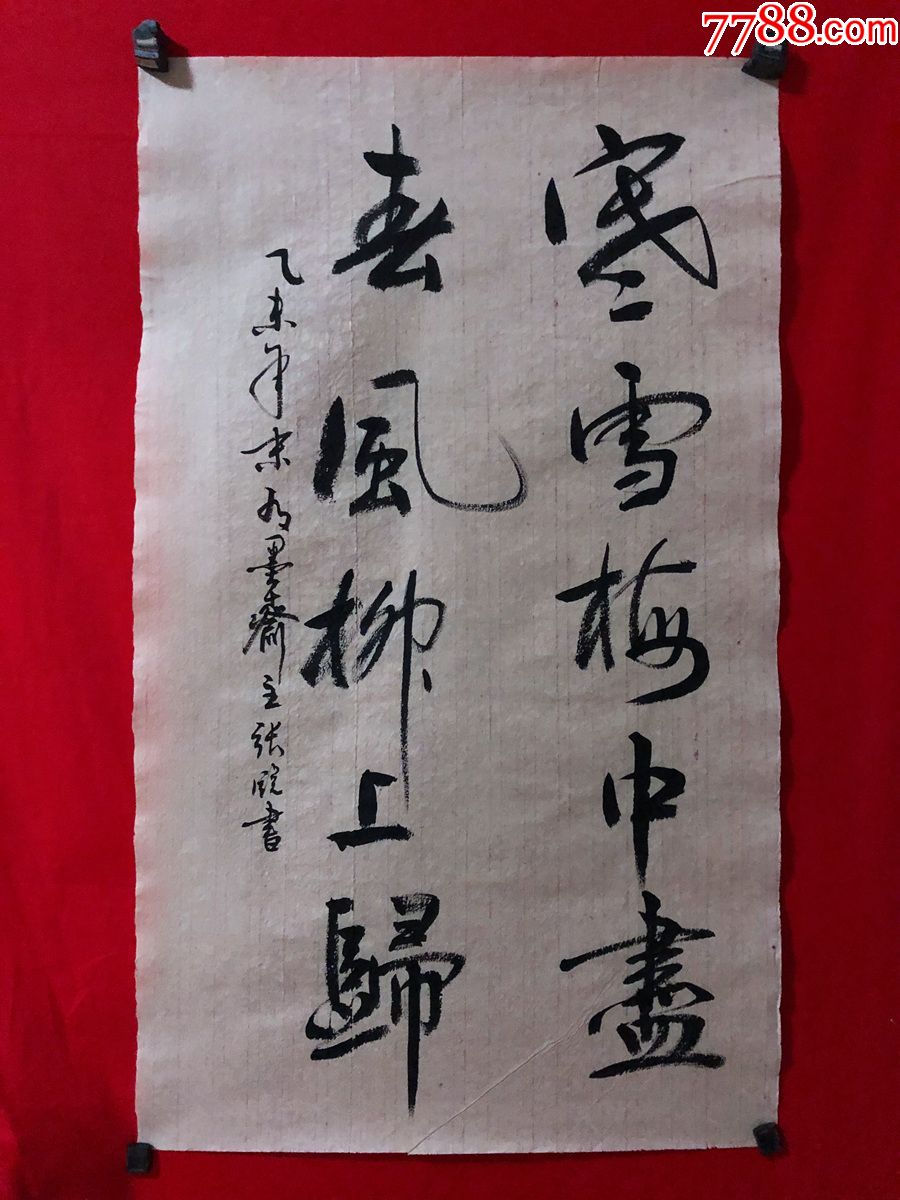 7788.com
寒雪梅中盡
春風柳上歸
乙未年末為墨齋主張書